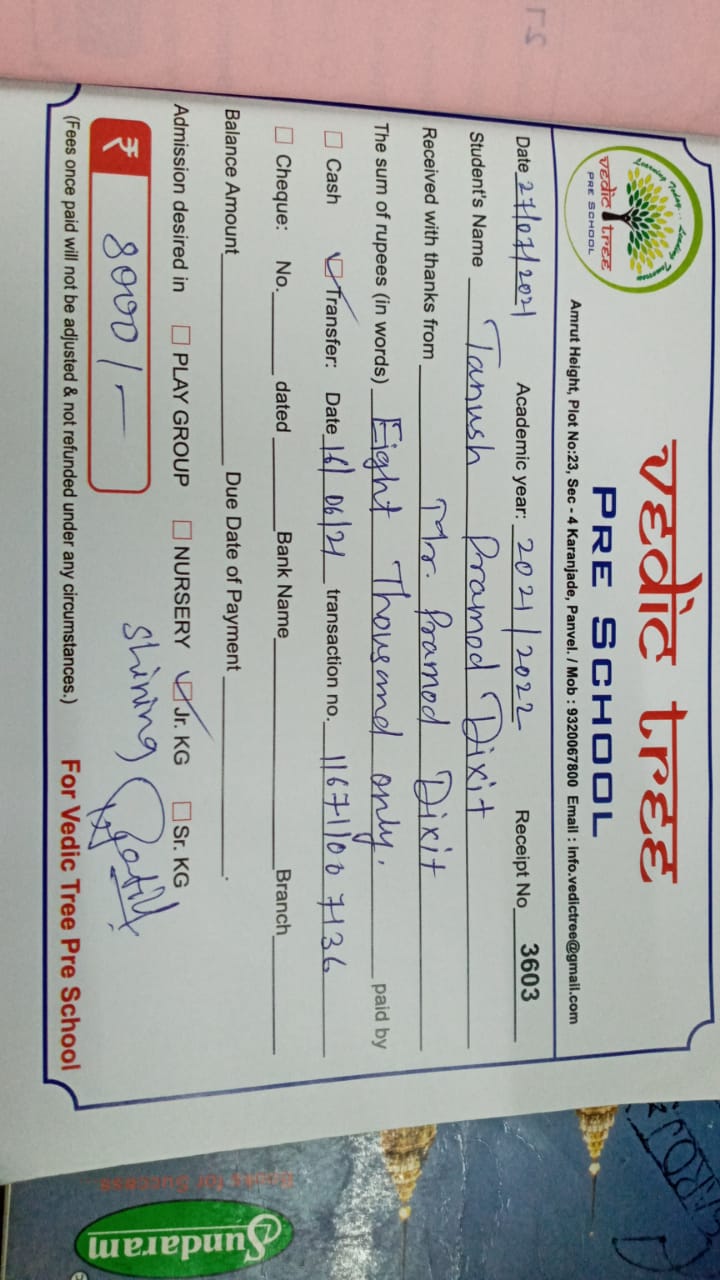 Learning Today... Leading Tomorrow
vedic tree
PRE SCHOOL
vedic tree
PRE SCHOOL
Amrut Height, Plot No:23, Sec - 4 Karanjade, Panvel. / Mob : 9320067800 Email : Info.vedictree@gmail.com
Date 27/07/2021 Academic year: 2021/2022 Receipt No 3603
Student's Name Tanush Pramod Dixit
Received with thanks from Mr. Pramod Dixit
The sum of rupees (in words) Eight Thousand only. paid by
Cash Transfer: Date 16/06/21 transaction no. 116711007136
Cheque: No. dated Bank Name Branch
Balance Amount Due Date of Payment
Admission desired in PLAY GROUP NURSERY Jr. KG Sr. KG
Shining
₹ 8000/-
(Fees once paid will not be adjusted & not refunded under any circumstances.) For Vedic Tree Pre School
Sundaram